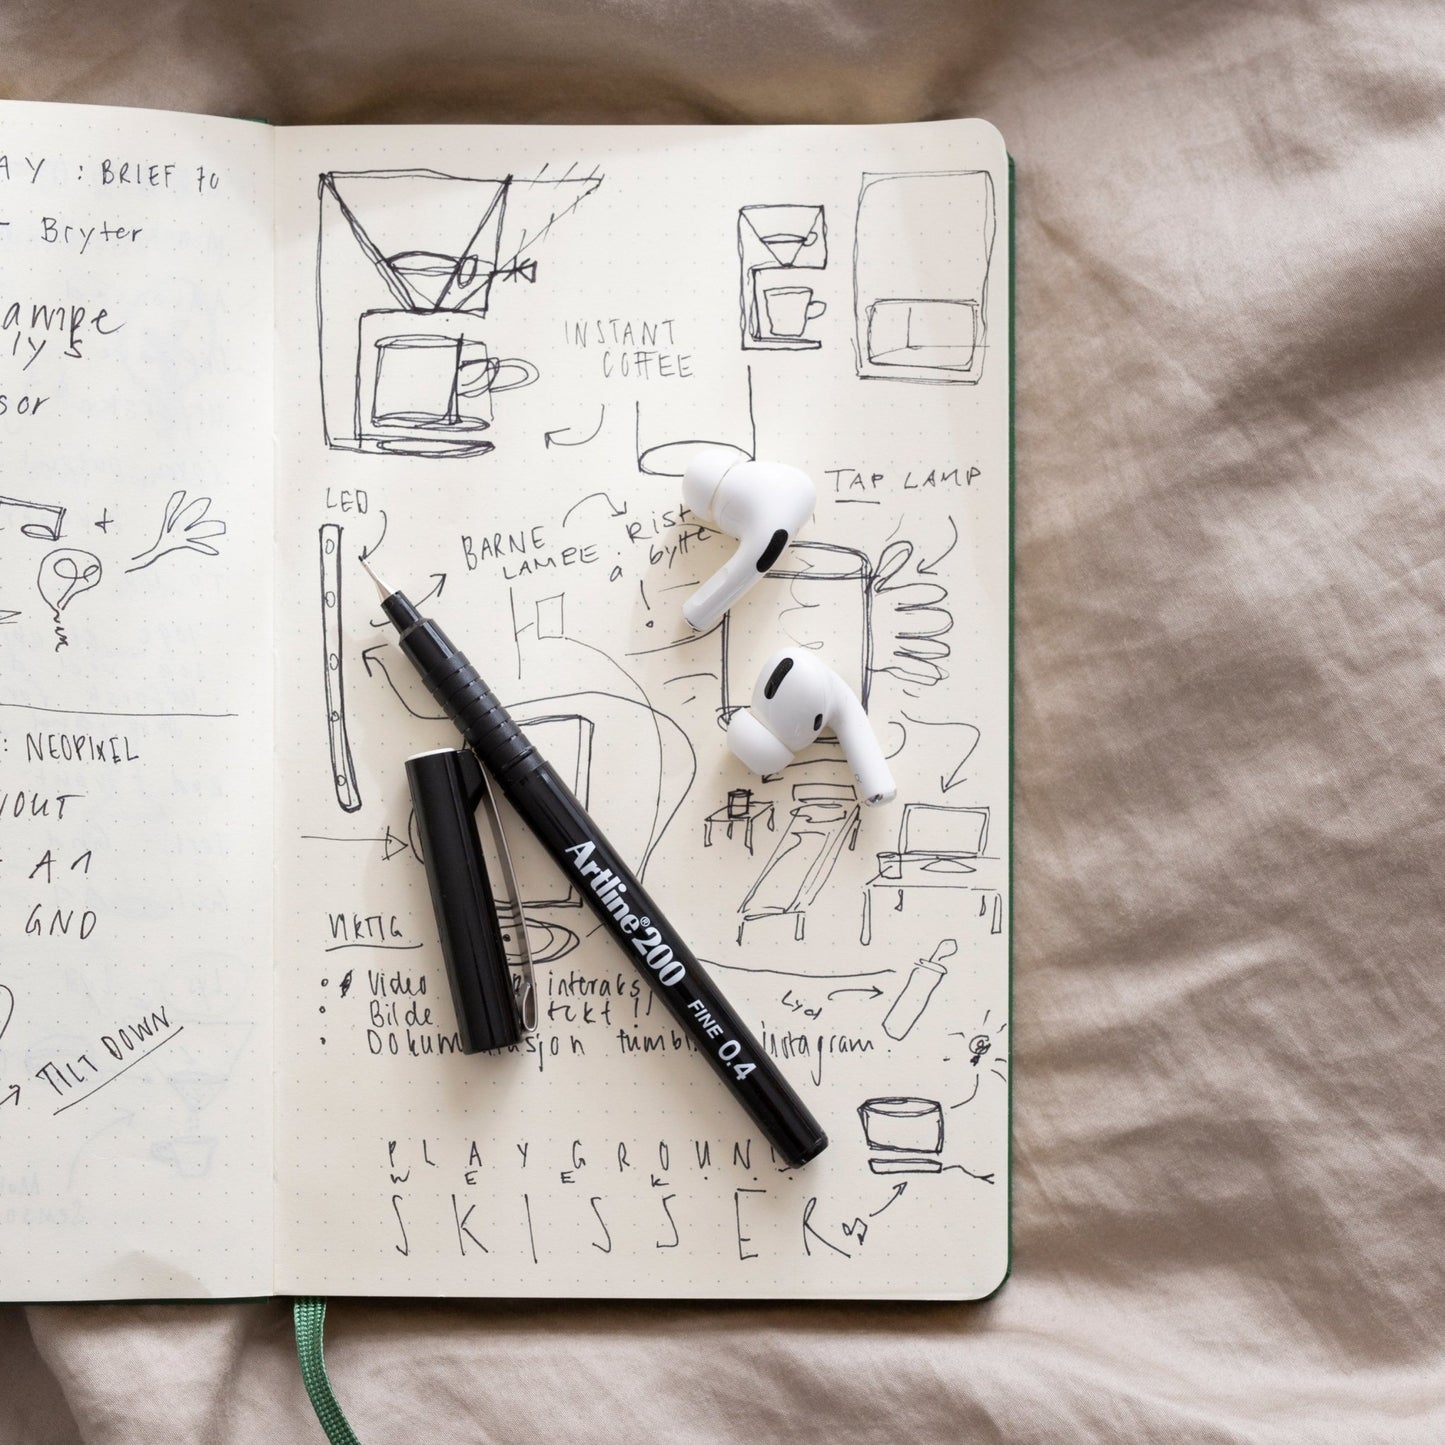 : BRIEF 70
Bryter
ampe
lys
sor
: NEOPIXEL
VOUT
A1
GND
TILT DOWN
INSTANT
COFFEE
LED
BARNE
LAMPE
Rist
å bytte
!
TAP LAMP
VIKTIG
• Video interaks
• Bilde tekt !!
• instagram.
Lyd
PLAYGROUND
W E E K
SKISSER
Artline®200 FINE 0.4
R